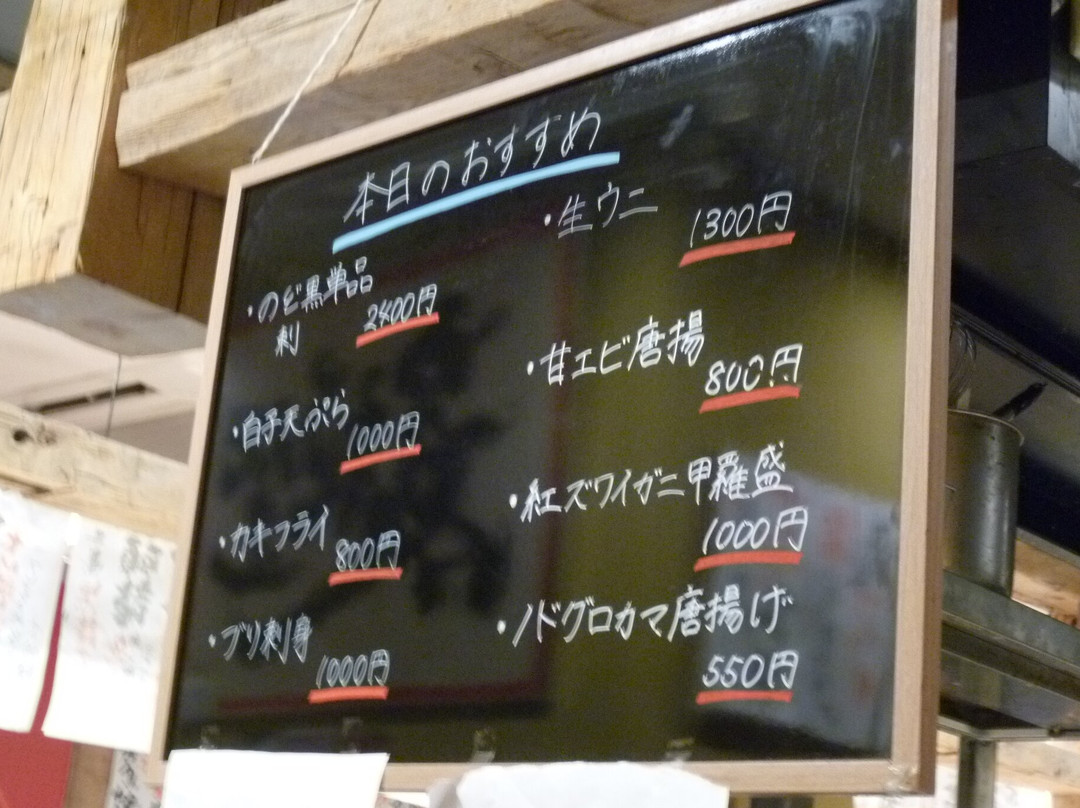 本日のおすすめ
・のど黒単品
刺
2400円
・白子天ぷら
1000円
・カキフライ
800円
・ブリ刺身
1000円
・生ウニ
1300円
・甘エビ唐揚
800円
・紅ズワイガニ甲羅盛
1000円
・ノドグロカマ唐揚げ
550円